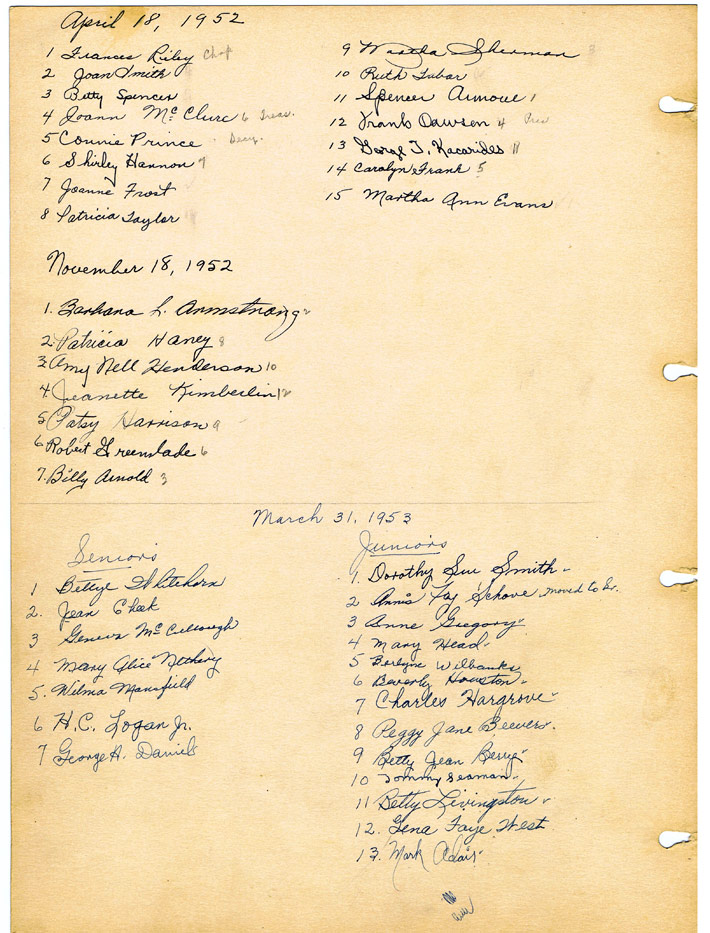 April 18, 1952
1 Frances Riley Chap
2 Joan Smith
3 Betty Spencer
4 Joann McClure 6 Treas.
5 Connie Prince
6 Shirley Hannon 9
7 Joanne Frost
8 Patricia Taylor
9 Martha Sherman
10 Ruth Tubar
11 Spencer Armour 1
12 Frank Dawson 4 Pres
13 George T. Kacarides 11
14 Carolyn Frank 5
15 Martha Ann Evans
November 18, 1952
1. Barbara L. Armstrong
2. Patricia Haney 8
3. Amy Nell Henderson 10
4. Jeanette Kimberlin 12
5 Patsy Harrison 9
6 Robert Greenslade 6
7. Billy Arnold 3
March 31, 1953
Seniors
1 Bettye Whitehorn
2. Jean Cheek
3 Geneva McCullough
4 Mary Alice Nethery
5. Wilma Mansfield
6 H.C. Logan Jr.
7 George A. Daniels
Juniors
1. Dorothy Sue Smith
2 Annis Fay Schove moved to Sr.
3 Anne Gregory
4 Mary Head
5 Wilbanks
6 Beverly Houston
7 Charles Hargrove
8 Peggy Jane Beevers
9 Betty Jean Berry
10 Tommy Seaman
11 Betty Livingston
12. Gena Faye West
13. Mark Adair